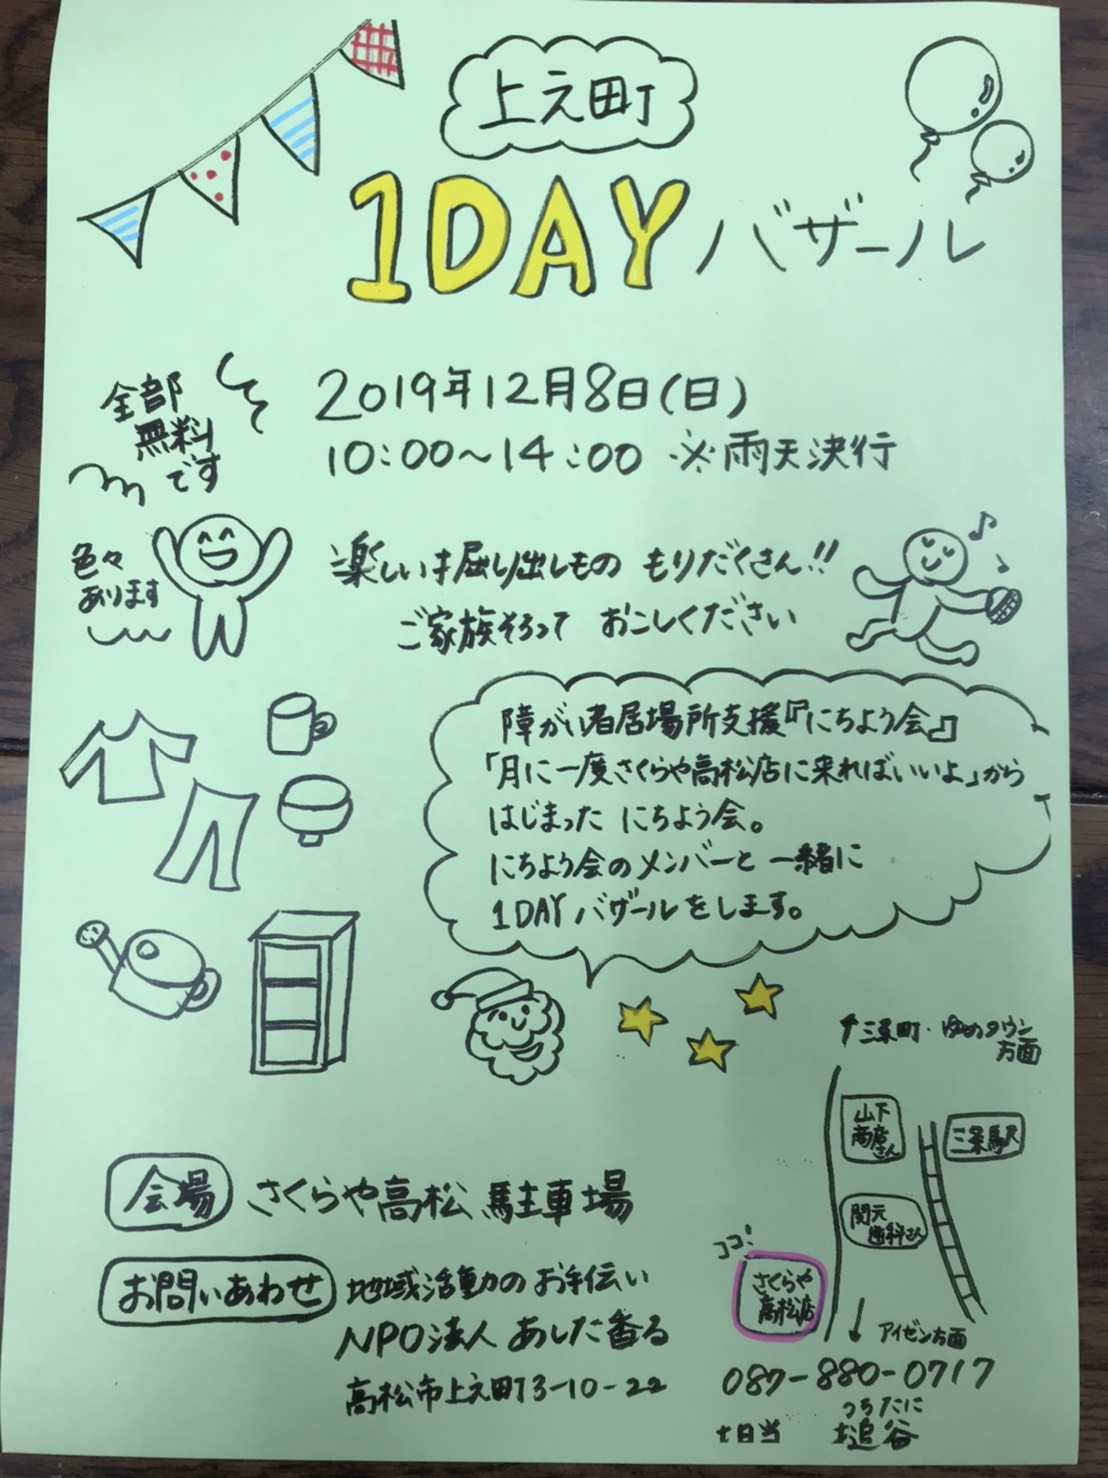 上之町
1DAY バザール
全部
無料
です
2019年12月8日(日)
10:00～14:00 ※雨天決行
色々
あります
楽しい掘り出しもの もりだくさん!!
ご家族そろって おこしください
障がい者居場所支援『にちよう会』
「月に一度さくらや高松店に来ればいいよ」から
はじまった にちよう会。
にちよう会のメンバーと一緒に
1DAY バザールをします。
↑三条町・ゆめタウン
方面
山下
商店さん
三条駅
関元
歯科さん
ココ!
さくらや
高松店
アイゼン方面
会場 さくらや高松 駐車場
お問いあわせ 地域活動のお手伝い
NPO法人 あした香る
高松市上之町3-10-22
087-880-0717
つちたに
担当 槌谷